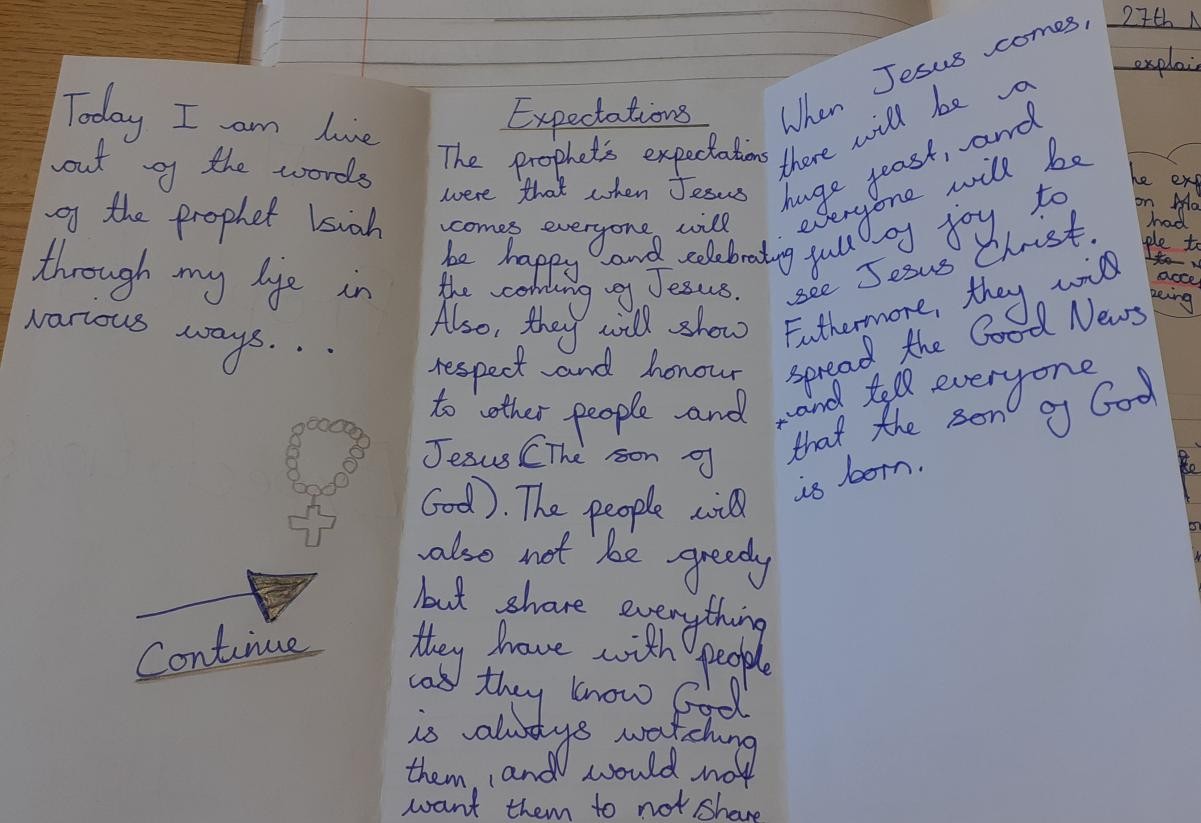 Today I am live
out of the words
of the prophet Isiah
through my life in
various ways. . .
Continue
Expectations
The prophet's expectations
were that when Jesus
comes everyone will
be happy and celebrating
the coming of Jesus.
Also, they will show
respect and honour
to other people and
Jesus (The son of
God). The people will
also not be greedy
but share everything
they have with people
as they know God
is always watching
them, and would not
want them to not share
When Jesus comes,
there will be a
huge feast, and
everyone will be
full of joy to
see Jesus Christ.
Futhermore, they will
spread the Good News
and tell everyone
that the son of God
is born.
27th
explai
had